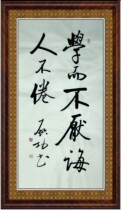 學而不厭誨
人不倦
啟功書